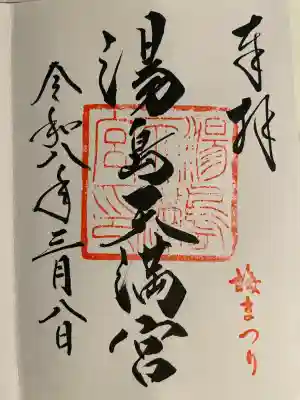 奉拝
梅まつり
湯島天満宮
令和八年三月八日